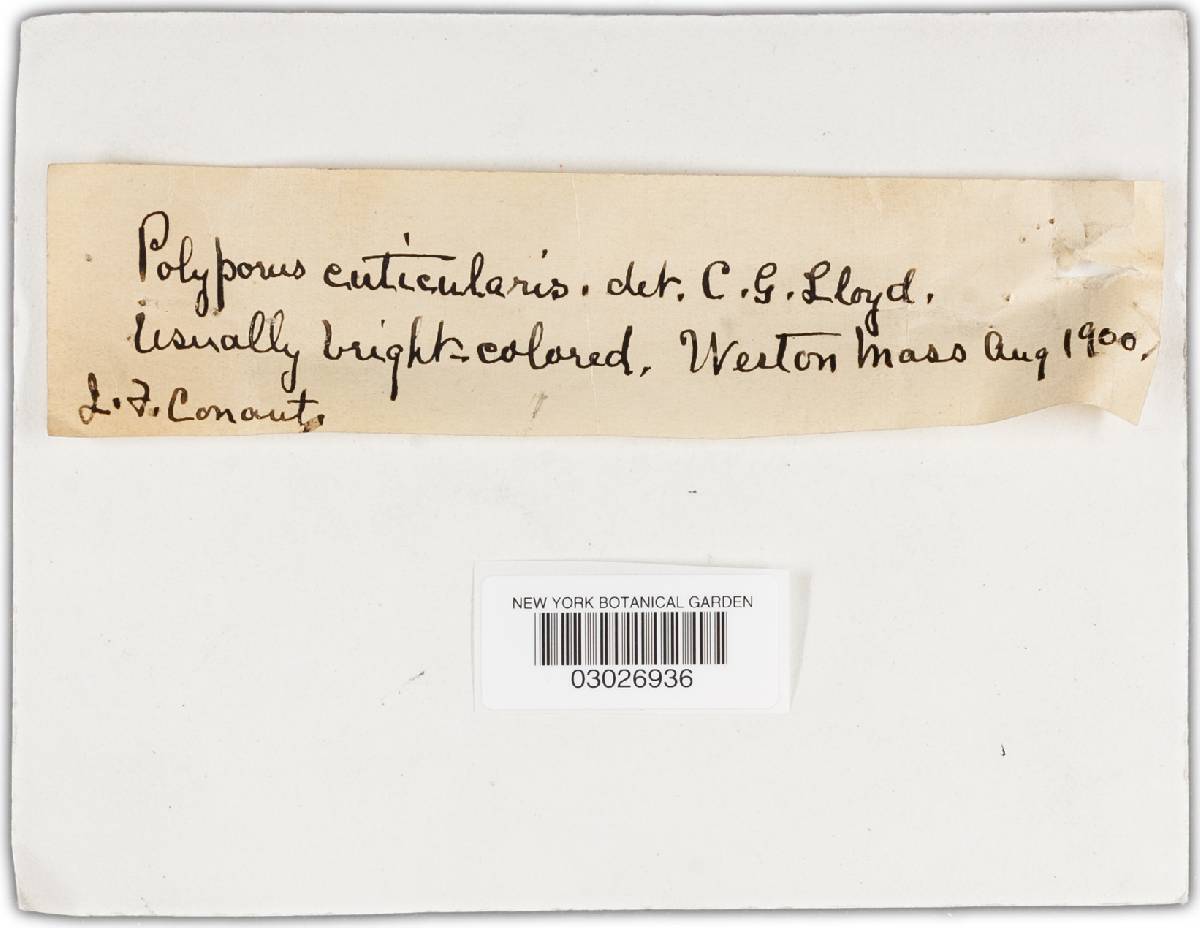 Polyporus cuticularis. det. C. G. Lloyd.
Usually bright-colored. Weston Mass Aug 1900.
J. F. Conant.
NEW YORK BOTANICAL GARDEN
03026936